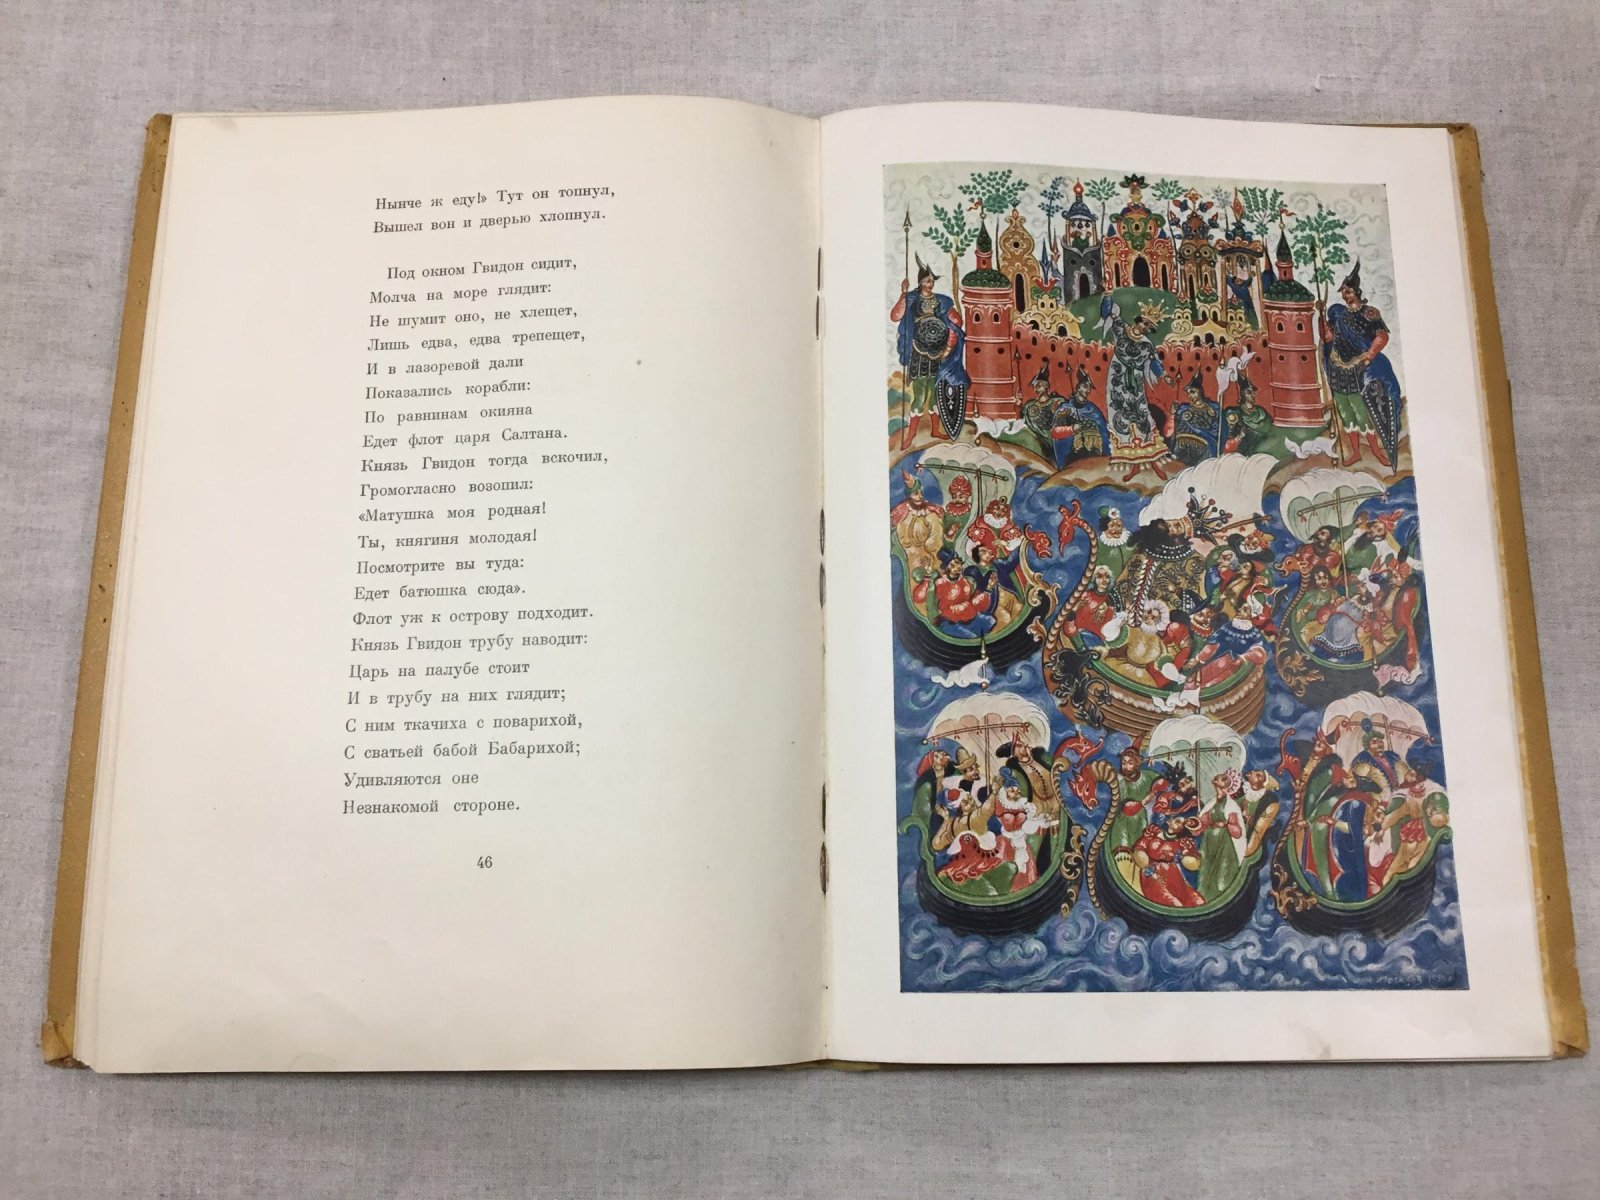 Нынче ж еду!» Тут он топнул,
Вышел вон и дверью хлопнул.
Под окном Гвидон сидит,
Молча на море глядит:
Не шумит оно, не хлещет,
Лишь едва, едва трепещет,
И в лазоревой дали
Показались корабли:
По равнинам окияна
Едет флот царя Салтана.
Князь Гвидон тогда вскочил,
Громогласно возопил:
«Матушка моя родная!
Ты, княгиня молодая!
Посмотрите вы туда:
Едет батюшка сюда».
Флот уж к острову подходит.
Князь Гвидон трубу наводит:
Царь на палубе стоит
И в трубу на них глядит;
С ним ткачиха с поварихой,
С сватьей бабой Бабарихой;
Удивляются оне
Незнакомой стороне.
46